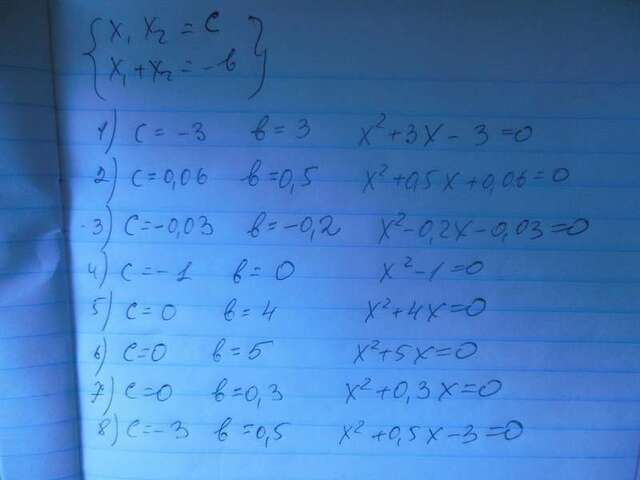 { x₁ x₂ = c }
{ x₁ + x₂ = -в }
1) c = -3 в = 3 x² + 3x - 3 = 0
2) c = 0,06 в = 0,5 x² + 0,5x + 0,06 = 0
3) c = -0,03 в = -0,2 x² - 0,2x - 0,03 = 0
4) c = -1 в = 0 x² - 1 = 0
5) c = 0 в = 4 x² + 4x = 0
6) c = 0 в = 5 x² + 5x = 0
7) c = 0 в = 0,3 x² + 0,3x = 0
8) c = -3 в = 0,5 x² + 0,5x - 3 = 0